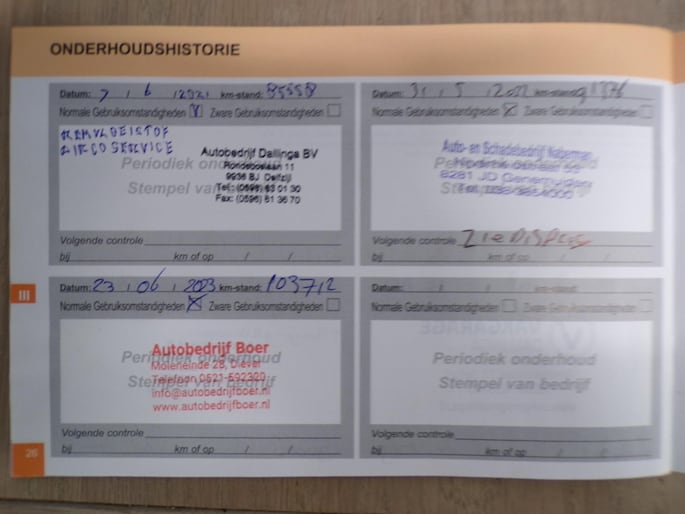 ONDERHOUDSHISTORIE
Datum: 7 / 6 / 2021 km-stand: 85558
Normale Gebruiksomstandigheden Zware Gebruiksomstandigheden
REMVLOEISTOF
AIRCO SERVICE
Autobedrijf Dallinga BV
Rondeboslaan 11
9936 BJ Delfzijl
Tel: (0596) 63 01 30
Fax: (0596) 61 36 70
Periodiek onderhoud
Stempel van bedrijf
Volgende controle
bij km of op / /
Datum: 31 / 5 / 2022 km-stand: 91376
Normale Gebruiksomstandigheden Zware Gebruiksomstandigheden
Auto- en Schadebedrijf Naberman
8281 JD Genemuiden
Periodiek onderhoud
Stempel van bedrijf
Volgende controle Zie Display
bij km of op / /
III
Datum: 23 / 06 / 2023 km-stand: 103712
Normale Gebruiksomstandigheden Zware Gebruiksomstandigheden
Autobedrijf Boer
Moleneinde 28, Diever
Telefoon 0521-592320
info@autobedrijfboer.nl
www.autobedrijfboer.nl
Periodiek onderhoud
Stempel van bedrijf
Volgende controle
bij km of op / /
Datum: / / km-stand:
Normale Gebruiksomstandigheden Zware Gebruiksomstandigheden
Periodiek onderhoud
Stempel van bedrijf
Volgende controle
bij km of op / /
26